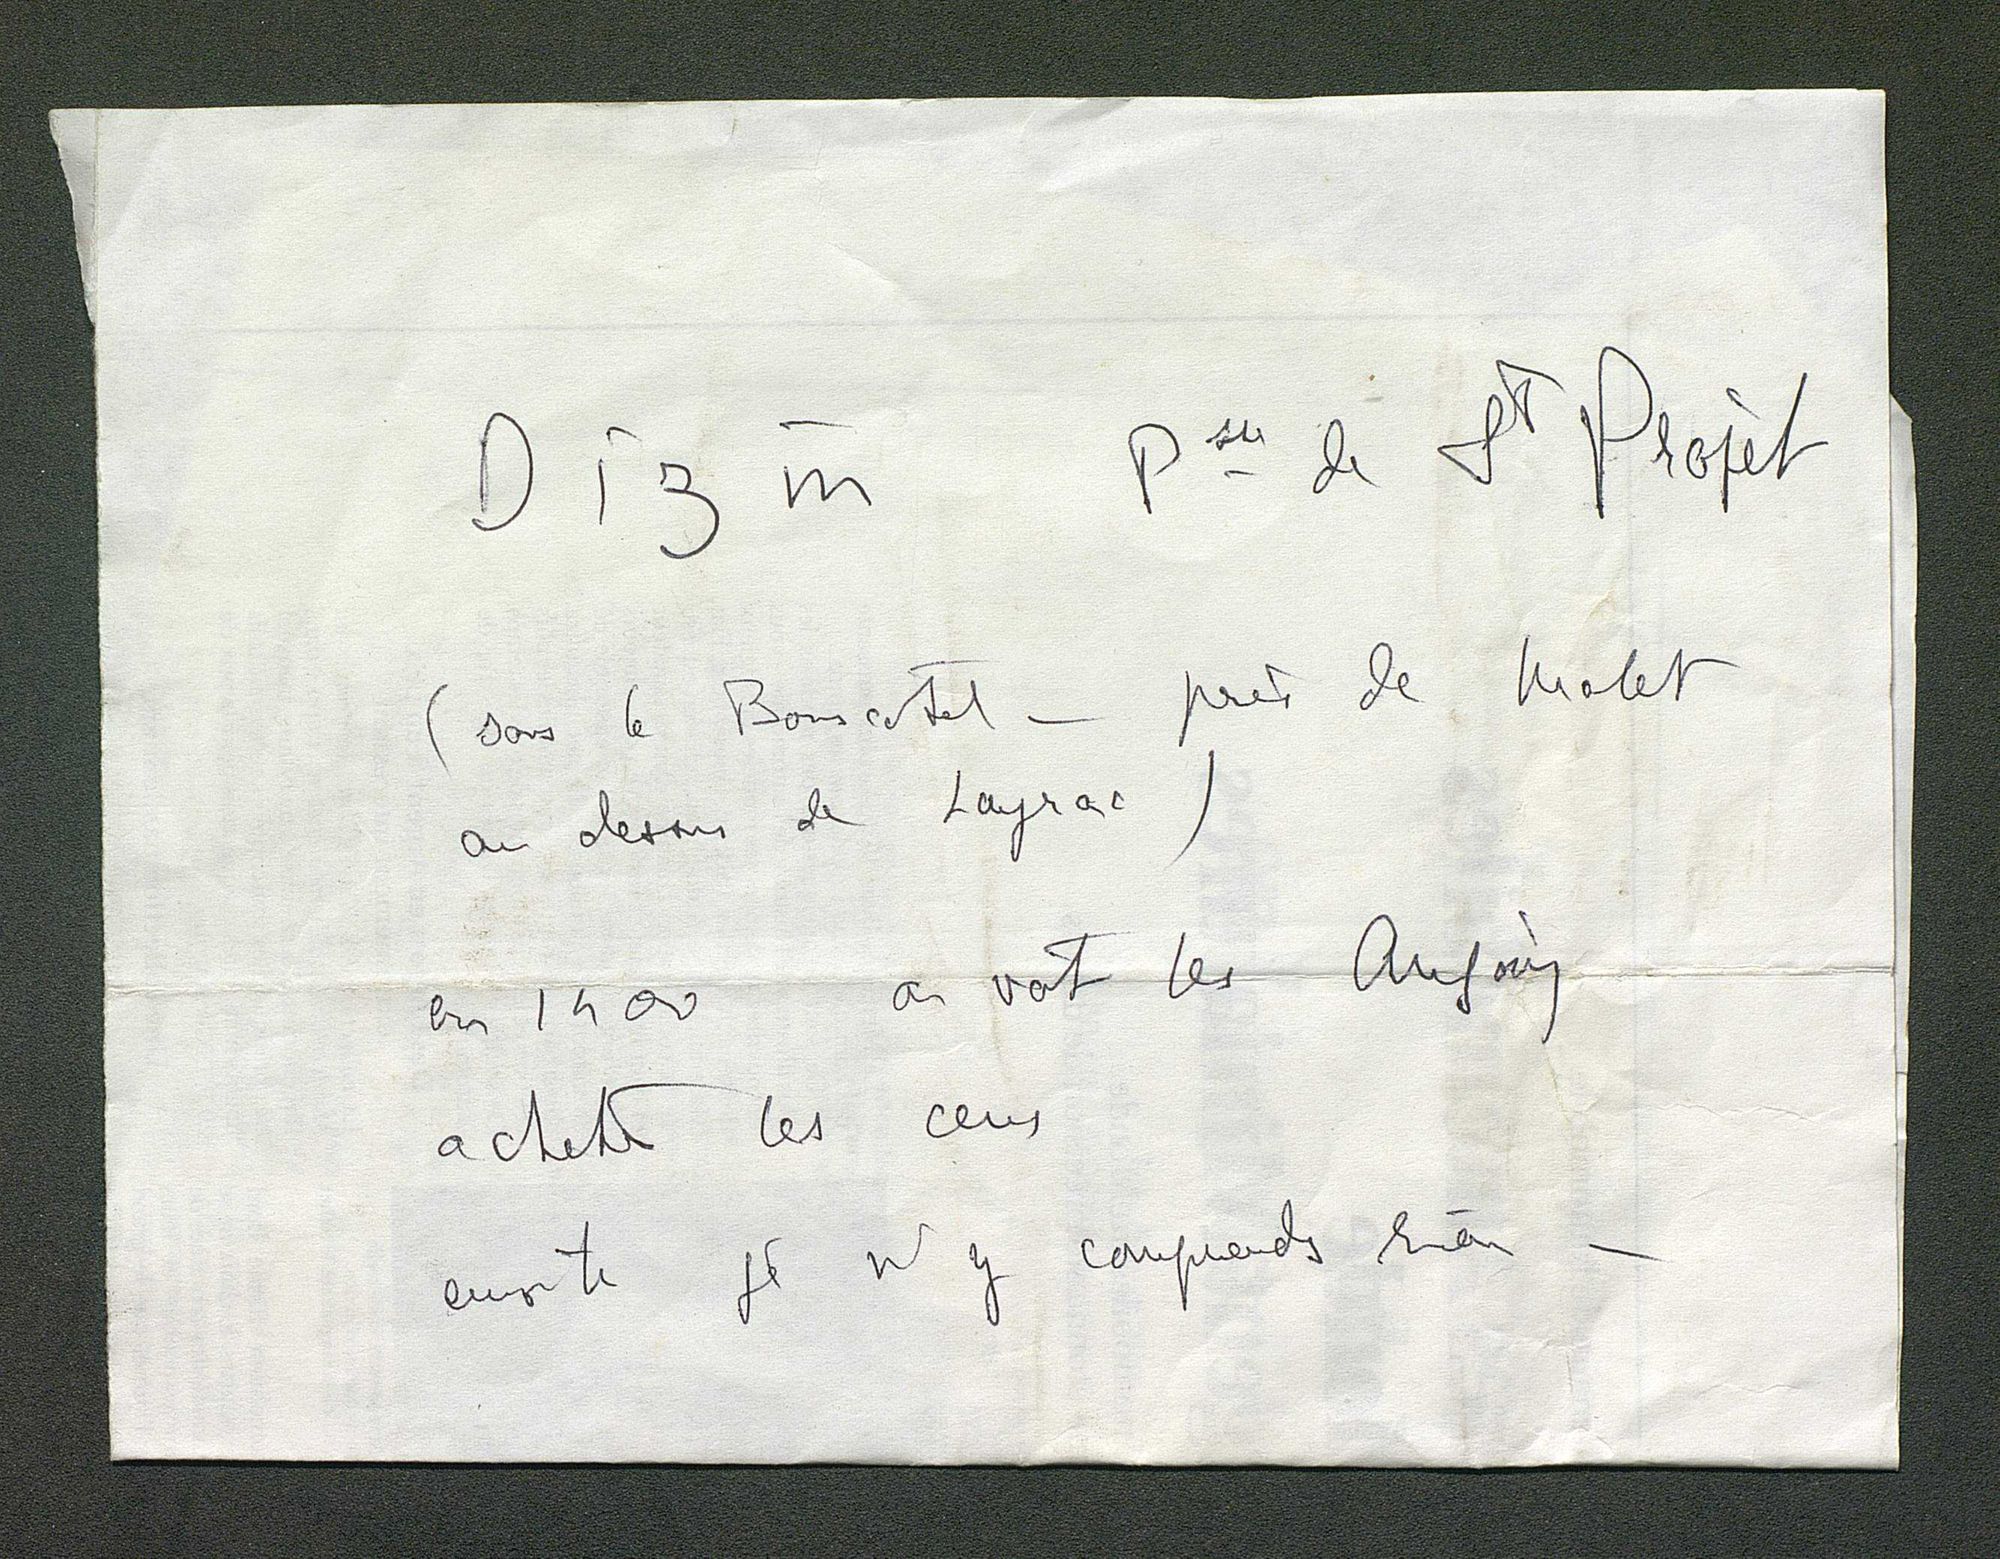 D I 3 III Psse de St Projet
(sous le Bouscatel – près de Malet
au dessus de Layrac)
en 1400 on voit les
acheter les cens
ensuite je n'y comprends rien –